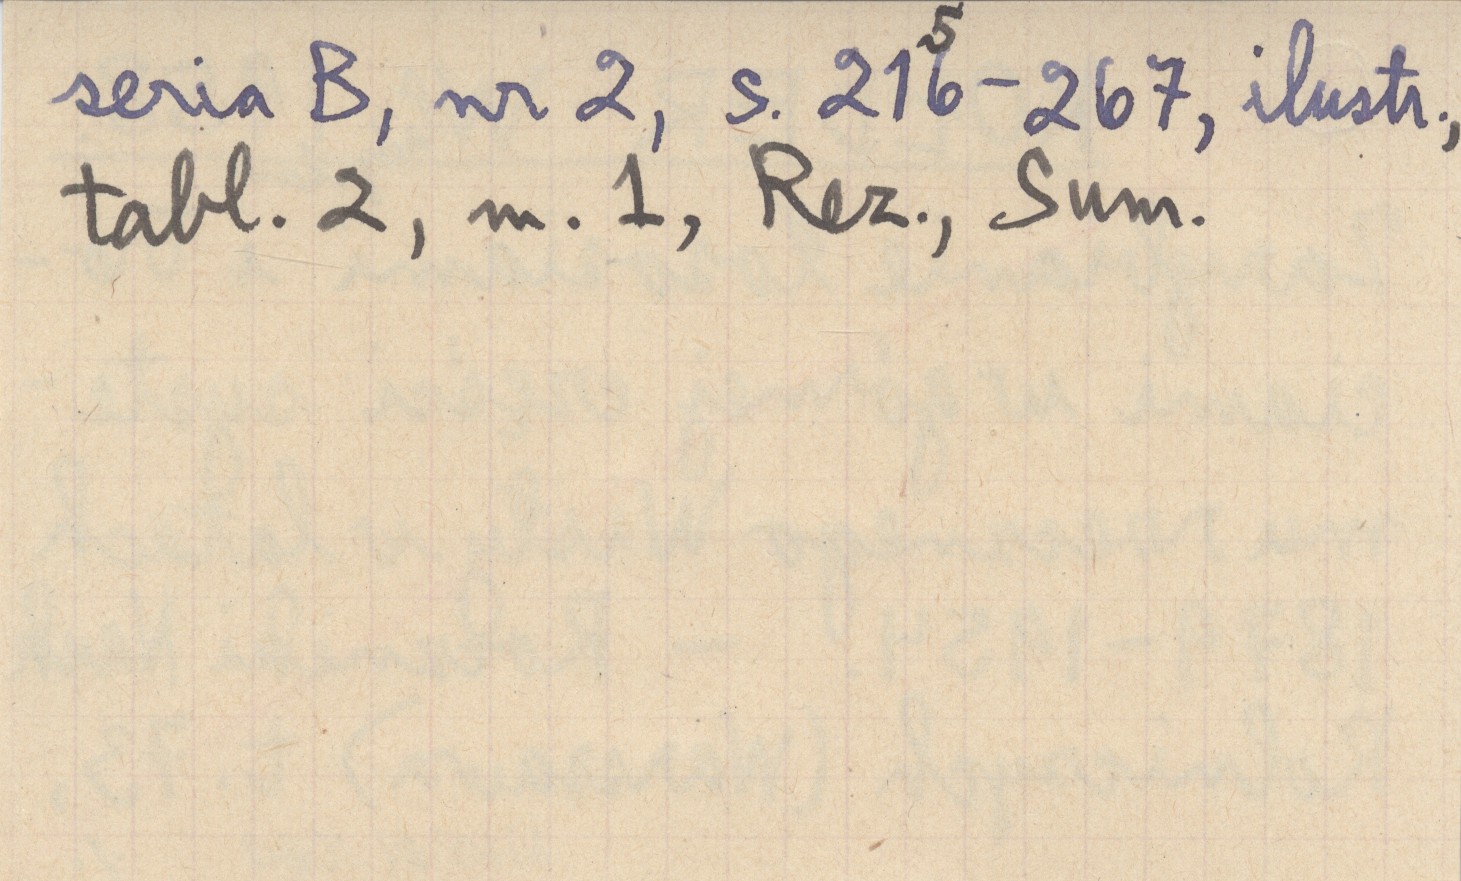 seria B, nr 2, s. 216-267, ilustr.,
tabl. 2, m. 1, Rez., Sum.